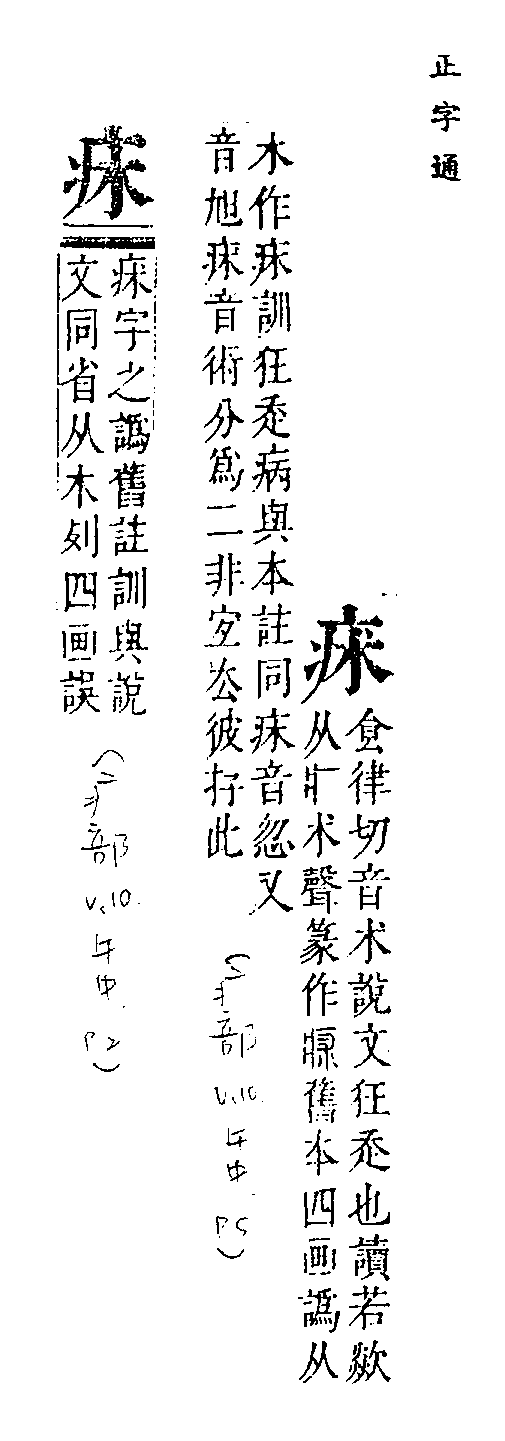 正字通
𤶬
食律切音术說文狂走也讀若欻
从疒术聲篆作𤶬舊本四画譌从
木作㾁訓狂走病與本註同㾁音忽又
音旭𤶬音術分爲二非宐厺彼存此
(疒部 v.10. 午中. P5)
㾁
𤶬字之譌舊註訓與說
文同省从木列四画誤
(疒部 v.10. 午中. P2)